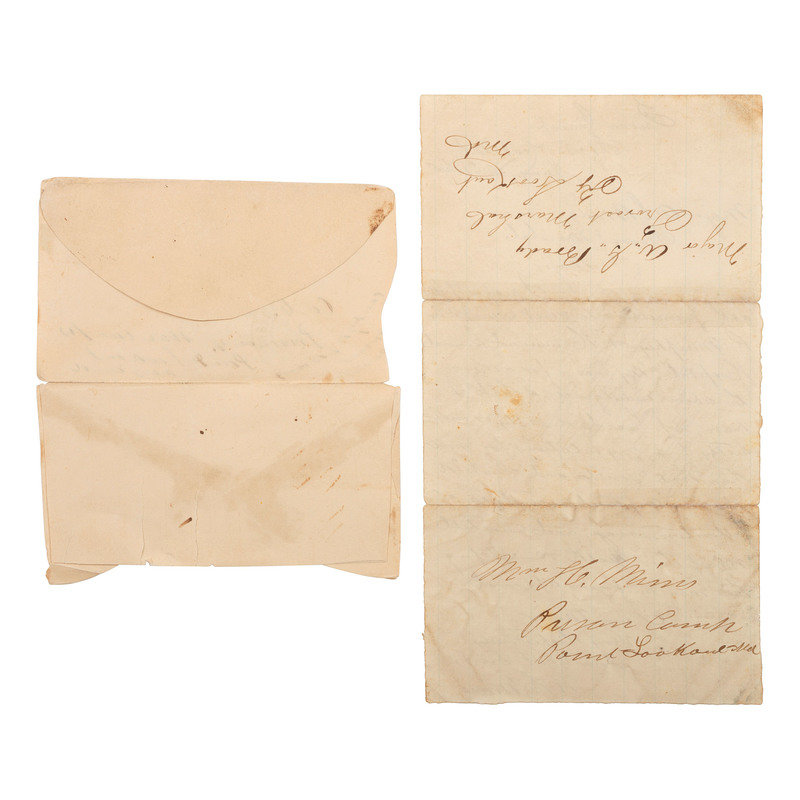 Major A. G. Brady
Provost Marshal
Pt Lookout
Md
Wm H. Mims
Prison Camp
Point Lookout Md